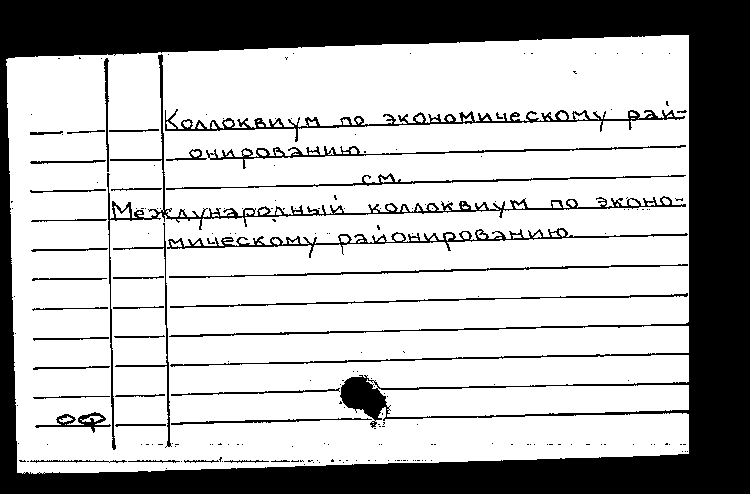 Коллоквиум по экономическому рай-
онированию.
см.
Международный коллоквиум по эконо-
мическому районированию.
оф